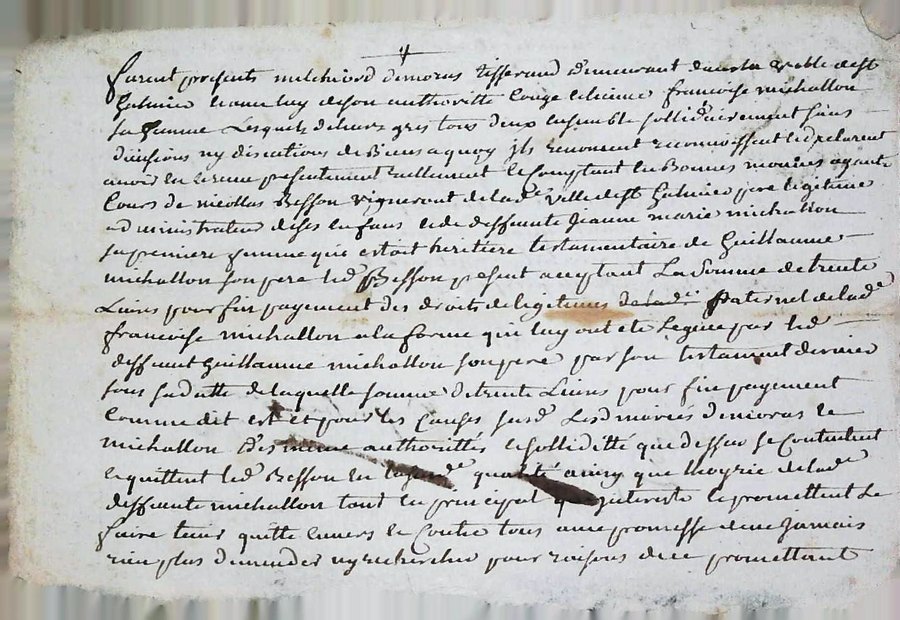 furent presents melchiord demoras tisserand demeurant dans la ville de st
galmier et avec luy de son authoritté conge et licence francoise michallon
sa femme Lesquels de leurs grés tous deux ensemble sollidairement sans
divisions ny discutions de Biens a quoy jls renoncent reconnoissent et declarent
avoir eu et receu presentement reellement et comptant en Bonnes monoies ayants
cours de nicollas Besson vigneront de lad.e ville de st galmier pere legitime
administrateur de ses enfans et de deffunte Jeanne marie michallon
sa premiere femme qui estoit heritiere testamentaire de Guillaume
michallon son pere led. Besson present acceptant La somme de trente
Livres pour fin payement des droits de legitimes paternel de lad.e
francoise michallon a la forme qui luy ont eté Leguée par led.
deffunt guillaume michallon son pere par son testament dernier
sous sa datte de laquelle somme de trente Livres pour fin payement
comme dit est et pour les causes susd. Lesd mariés demoras et
michallon de meme authorittés et solliditté que dessus se contentent
et quittent led. Besson en lasusd.e qualité ainsy que lhoyrie de lad.e
deffunte michallon tant en principal qu jnterests et promettent Le
faire tenir quitte envers et contre tous avec promesse de ne Jamais
rien plus demander ny rechercher pour raisons de ce promettant